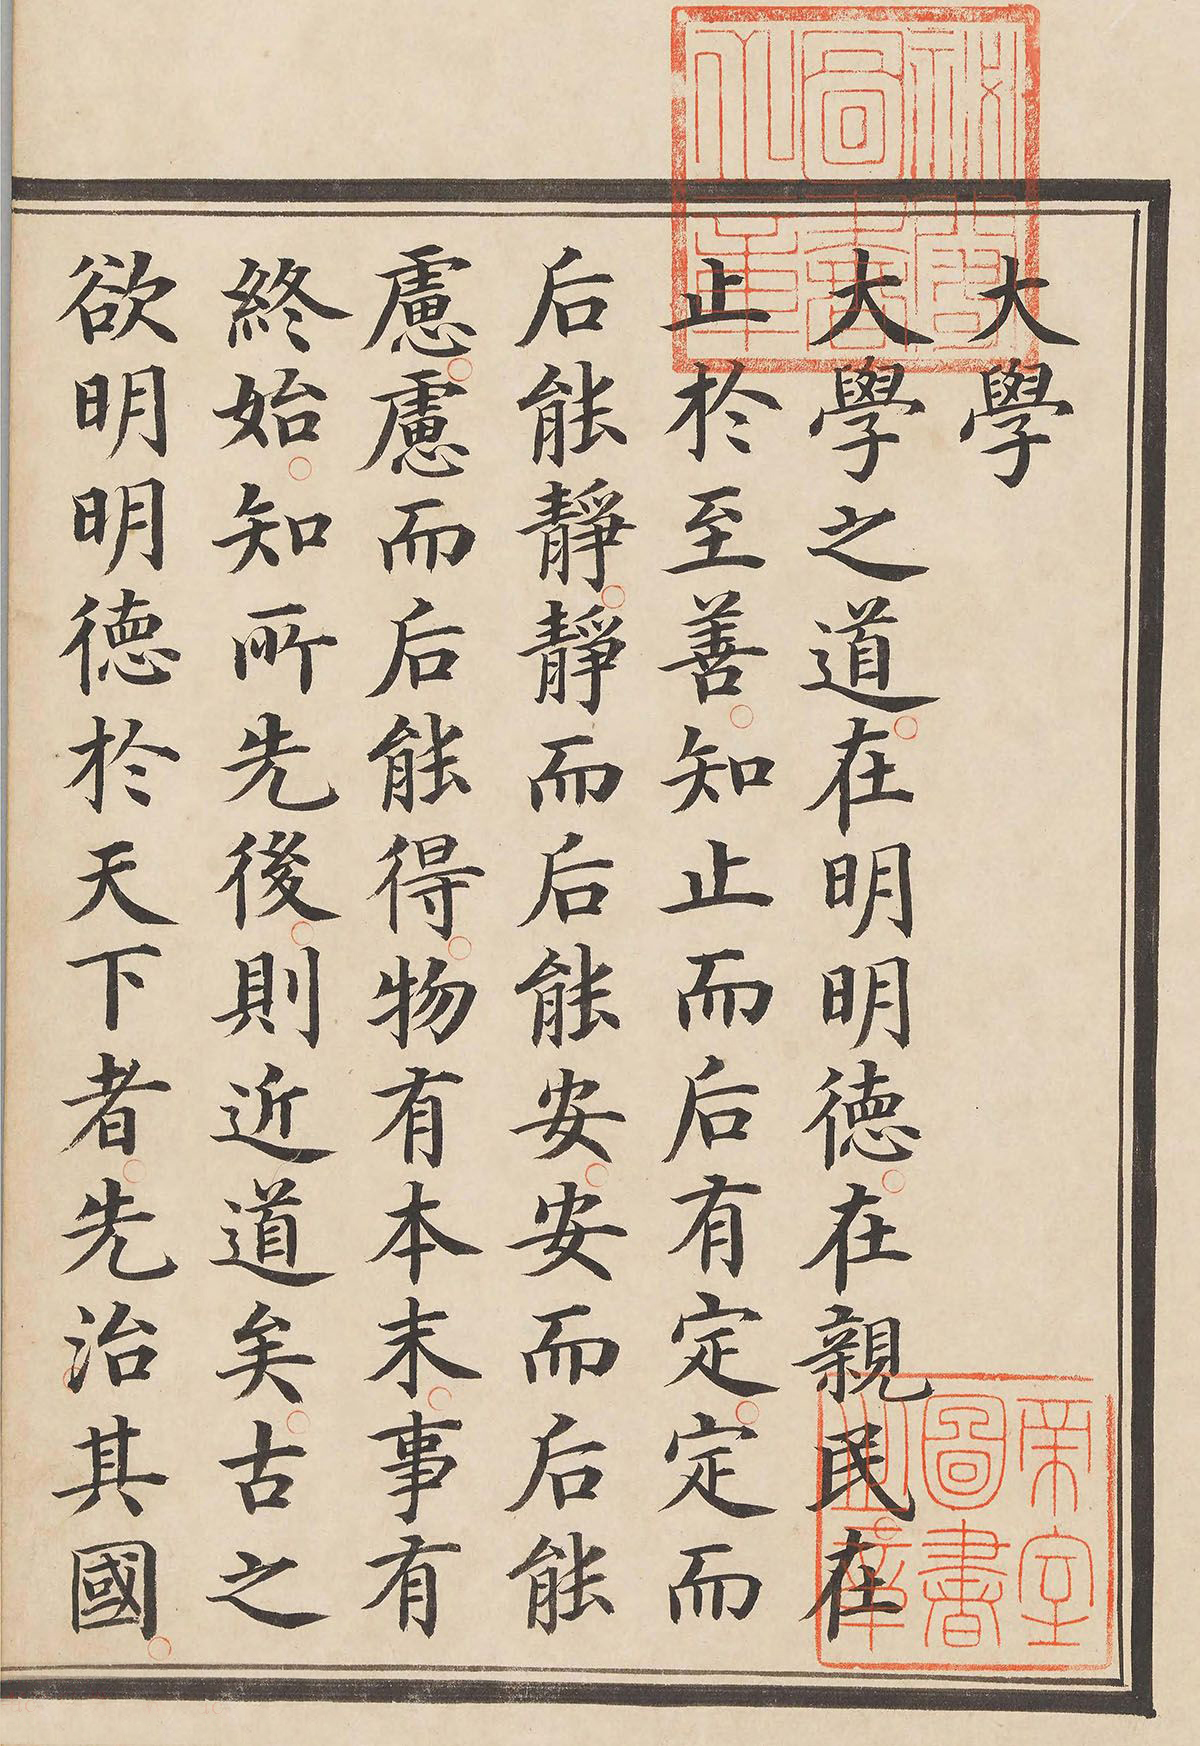 祕閣
圖書
之章
大學
大學之道。在明明德。在親民。在
止於至善。知止而后有定。定而
后能靜。靜而后能安。安而后能
慮。慮而后能得。物有本末。事有
終始。知所先後。則近道矣。古之
欲明明德於天下者。先治其國。
帝室
圖書
之章